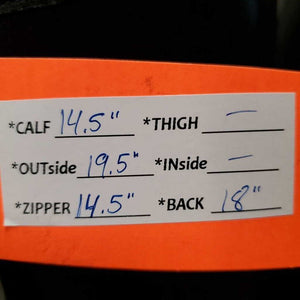 *CALF 14.5" *THIGH —
*OUTside 19.5" *INside —
*ZIPPER 14.5" *BACK 18"